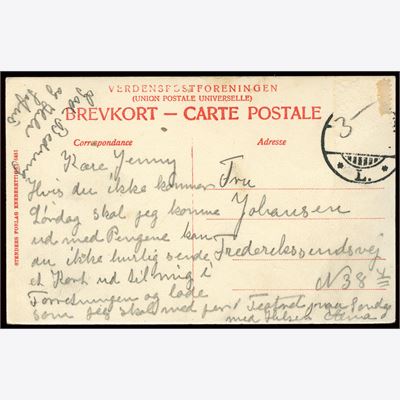 VERDENSPOSTFORENINGEN
(UNION POSTALE UNIVERSELLE)
BREVKORT — CARTE POSTALE
Correspondance
Adresse
Kære Jenny
Hvis du ikke kommer
Lørdag skal jeg komme
ud med Pengene kan
du ikke hurlig sende
et Kort ud til mig i
Forretningen og lade
som jeg skal med per i Teatret paa Søndag
med Hilsen
god og Hel
Bedring
Fru
Johansen
Frederikssundsvej
N 38
STENDERS FORLAG
L.